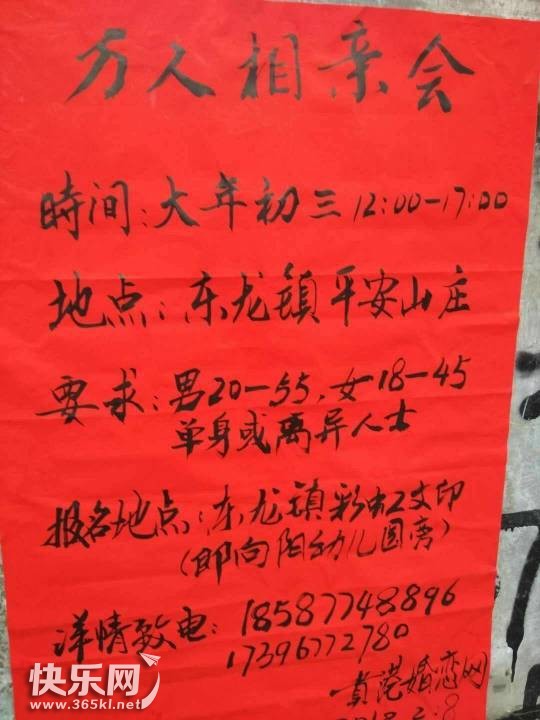 万人相亲会
時间:大年初三12:00-17:00
地点:东龙镇平安山庄
要求:男20-55,女18-45
单身或离异人士
报名地点:东龙镇彩虹文印
(即向阳幼儿园旁)
详情致电:18587748896
17396772780
贵港婚恋网
快乐网
www.365kl.net